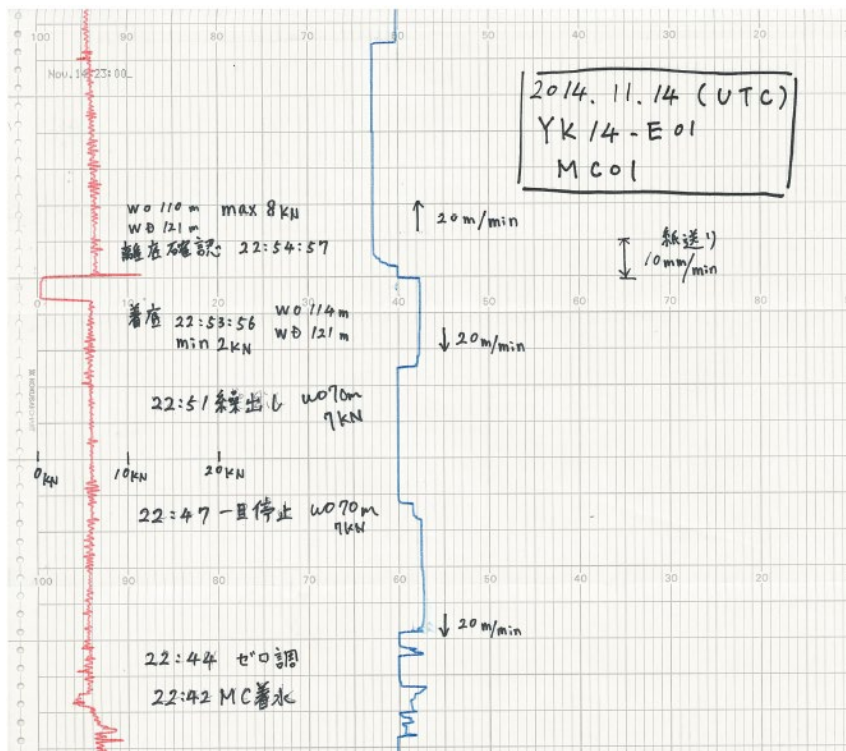 100 90 80 70 60 50 40 30 20
Nov.14 23:00
2014.11.14 (UTC)
YK14-E01
MC01
WO 110m max 8kN
WD 121m
離底確認 22:54:57
↑ 20m/min
紙送り
10mm/min
0 10 20 30 40 50 60 70 80
着底 22:53:56 WO 114m
min 2kN WD 121m
↓ 20m/min
22:51 繰出し WO70m
7kN
0kN 10kN 20kN
22:47 一旦停止 WO70m
7kN
100 90 80 70 60 50 40 30 20
↓ 20m/min
22:44 ゼロ調
22:42 MC着水